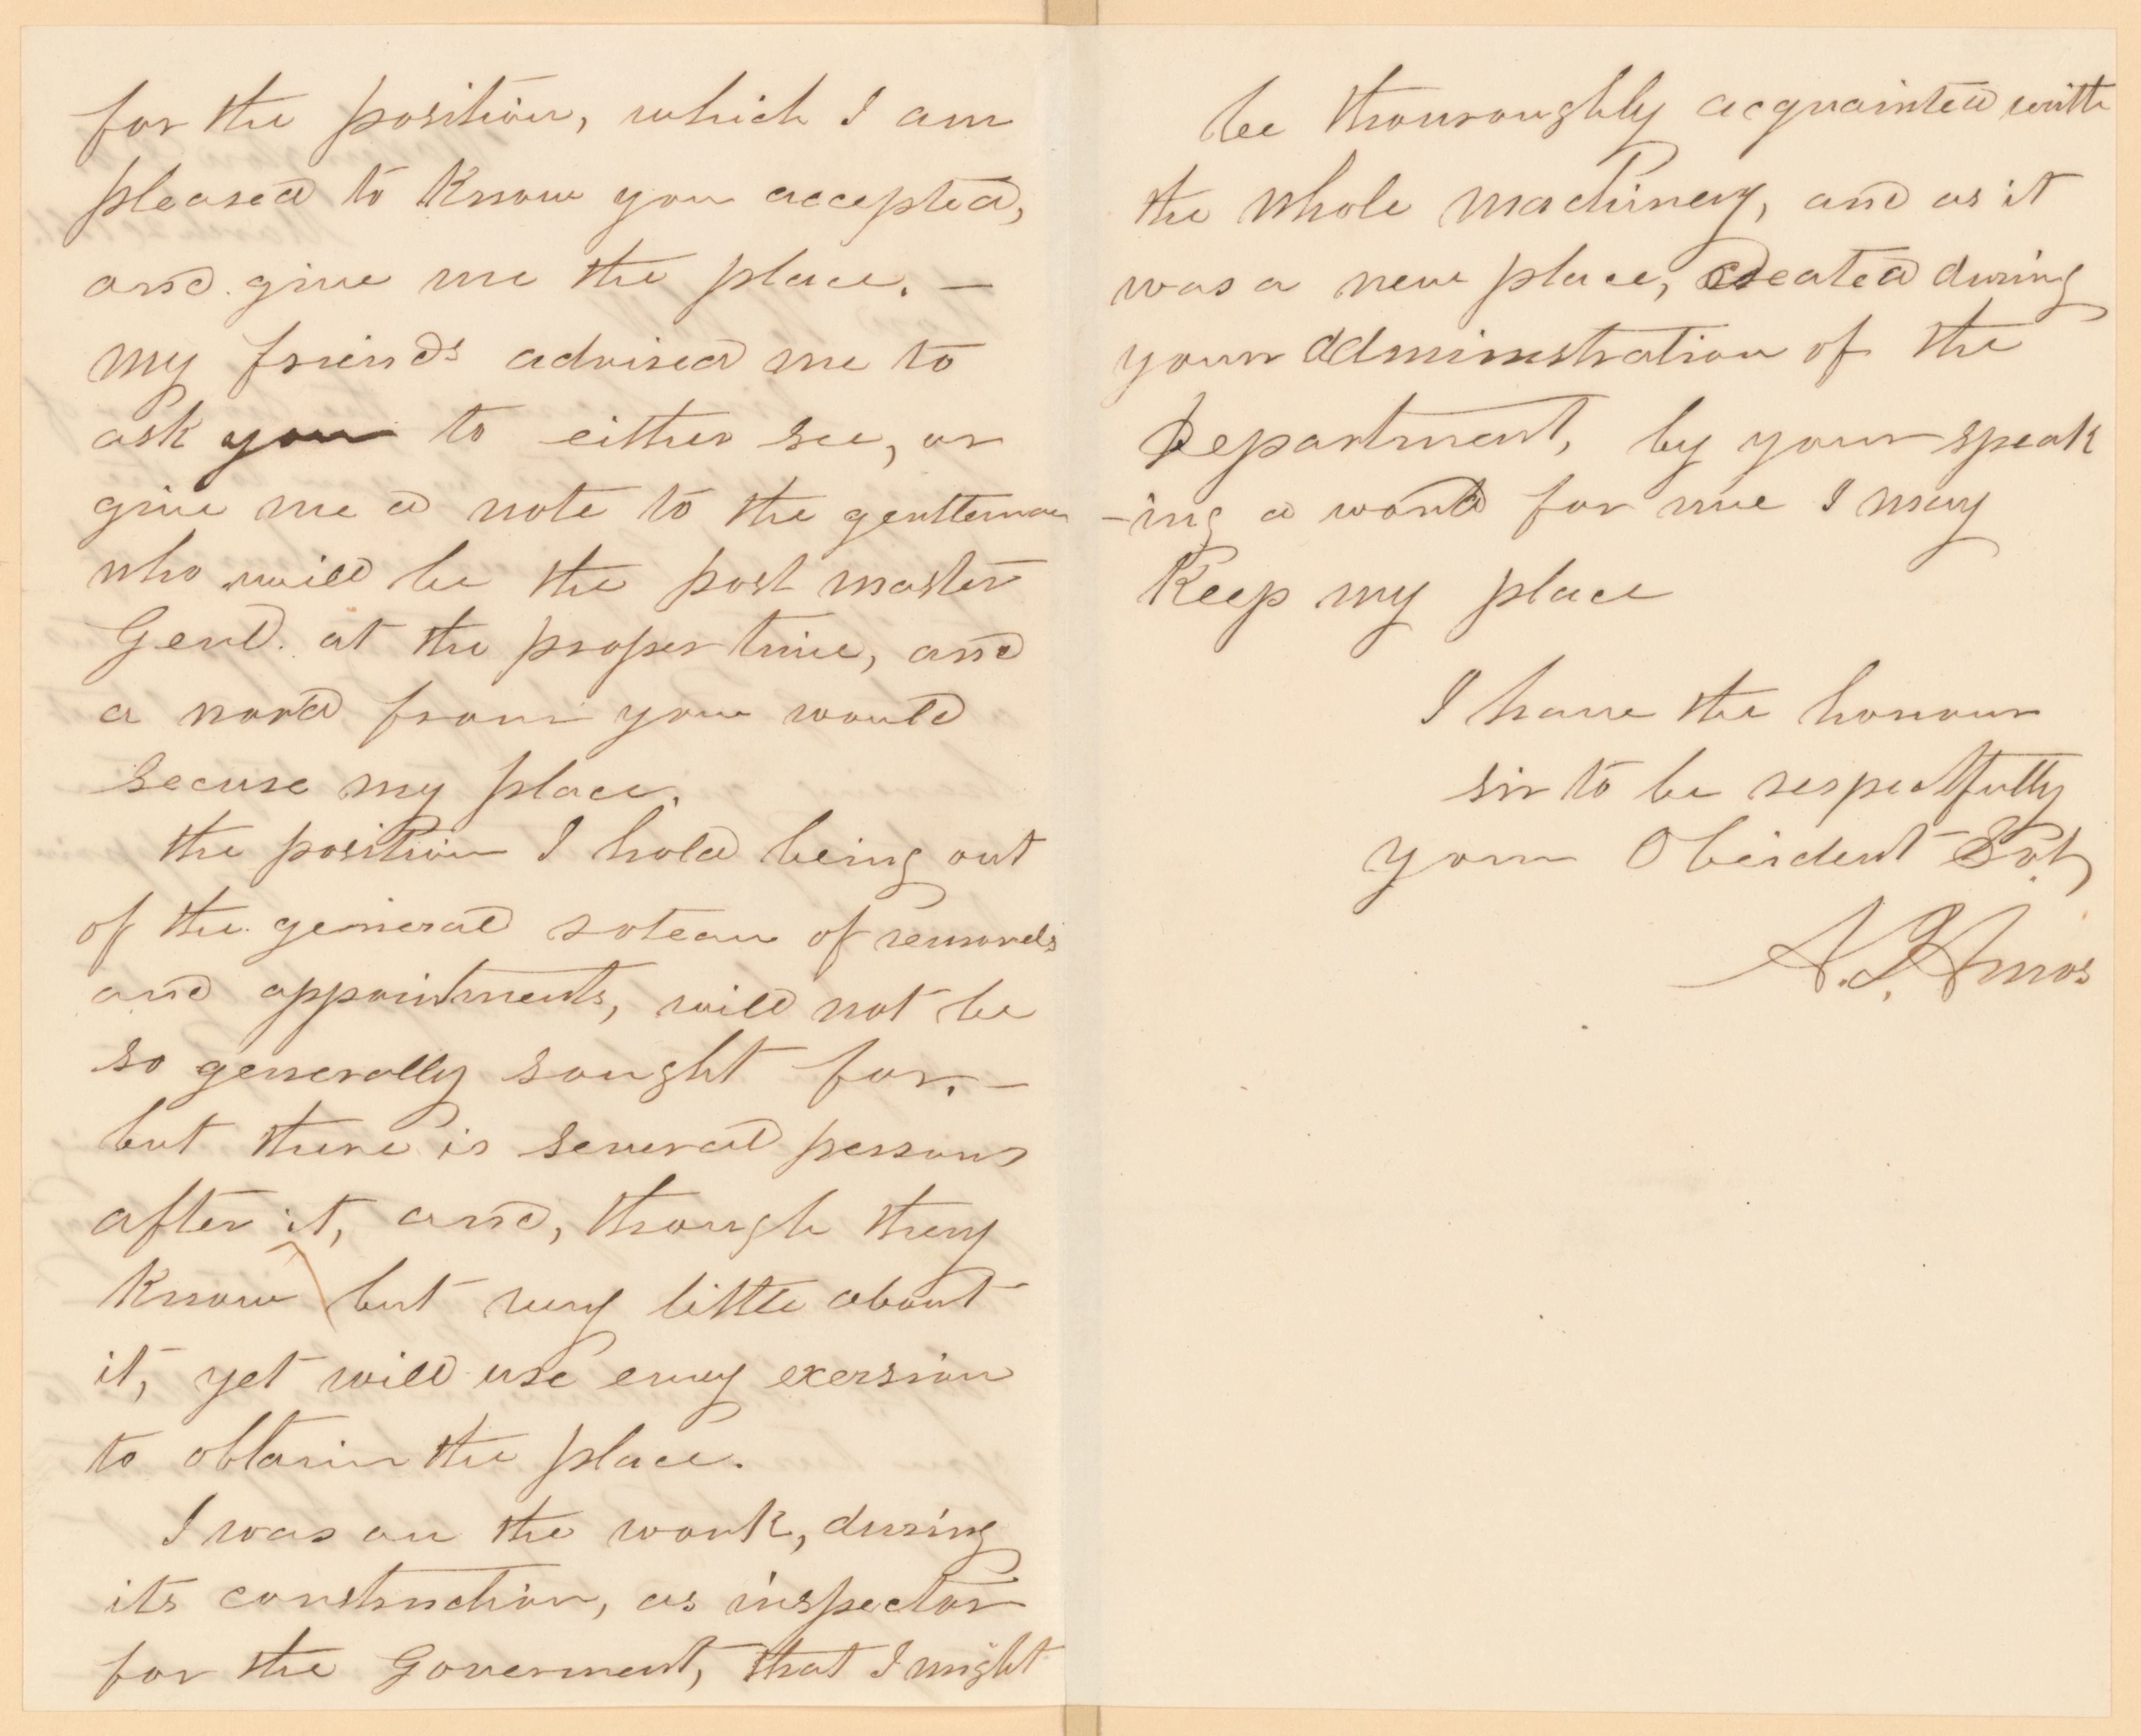 for the position, which I am
pleased to Know you accepted,
and give me the place. —
my friends advised me to
ask you to either see, or
give me a note to the gentleman
who will be the post master
Genl. at the proper time, and
a word from you would
secure my place.
the position I hold being out
of the general of removels
and appointments, will not be
so generally sought for. —
but there is several persons
after it, and, though they
Know but very little about
it, yet will use every exersion
to obtain the place.
I was on the work, during
its construction, as inspector
for the Goverment, that I might
be thouroughly acquainted with
the whole machinery, and as it
was a new place, created during
your Administration of the
Department, by your speak
-ing a word for me I may
Keep my place
I have the honour
sir to be respectfully
your Obeident Svt,
A. J. Amos